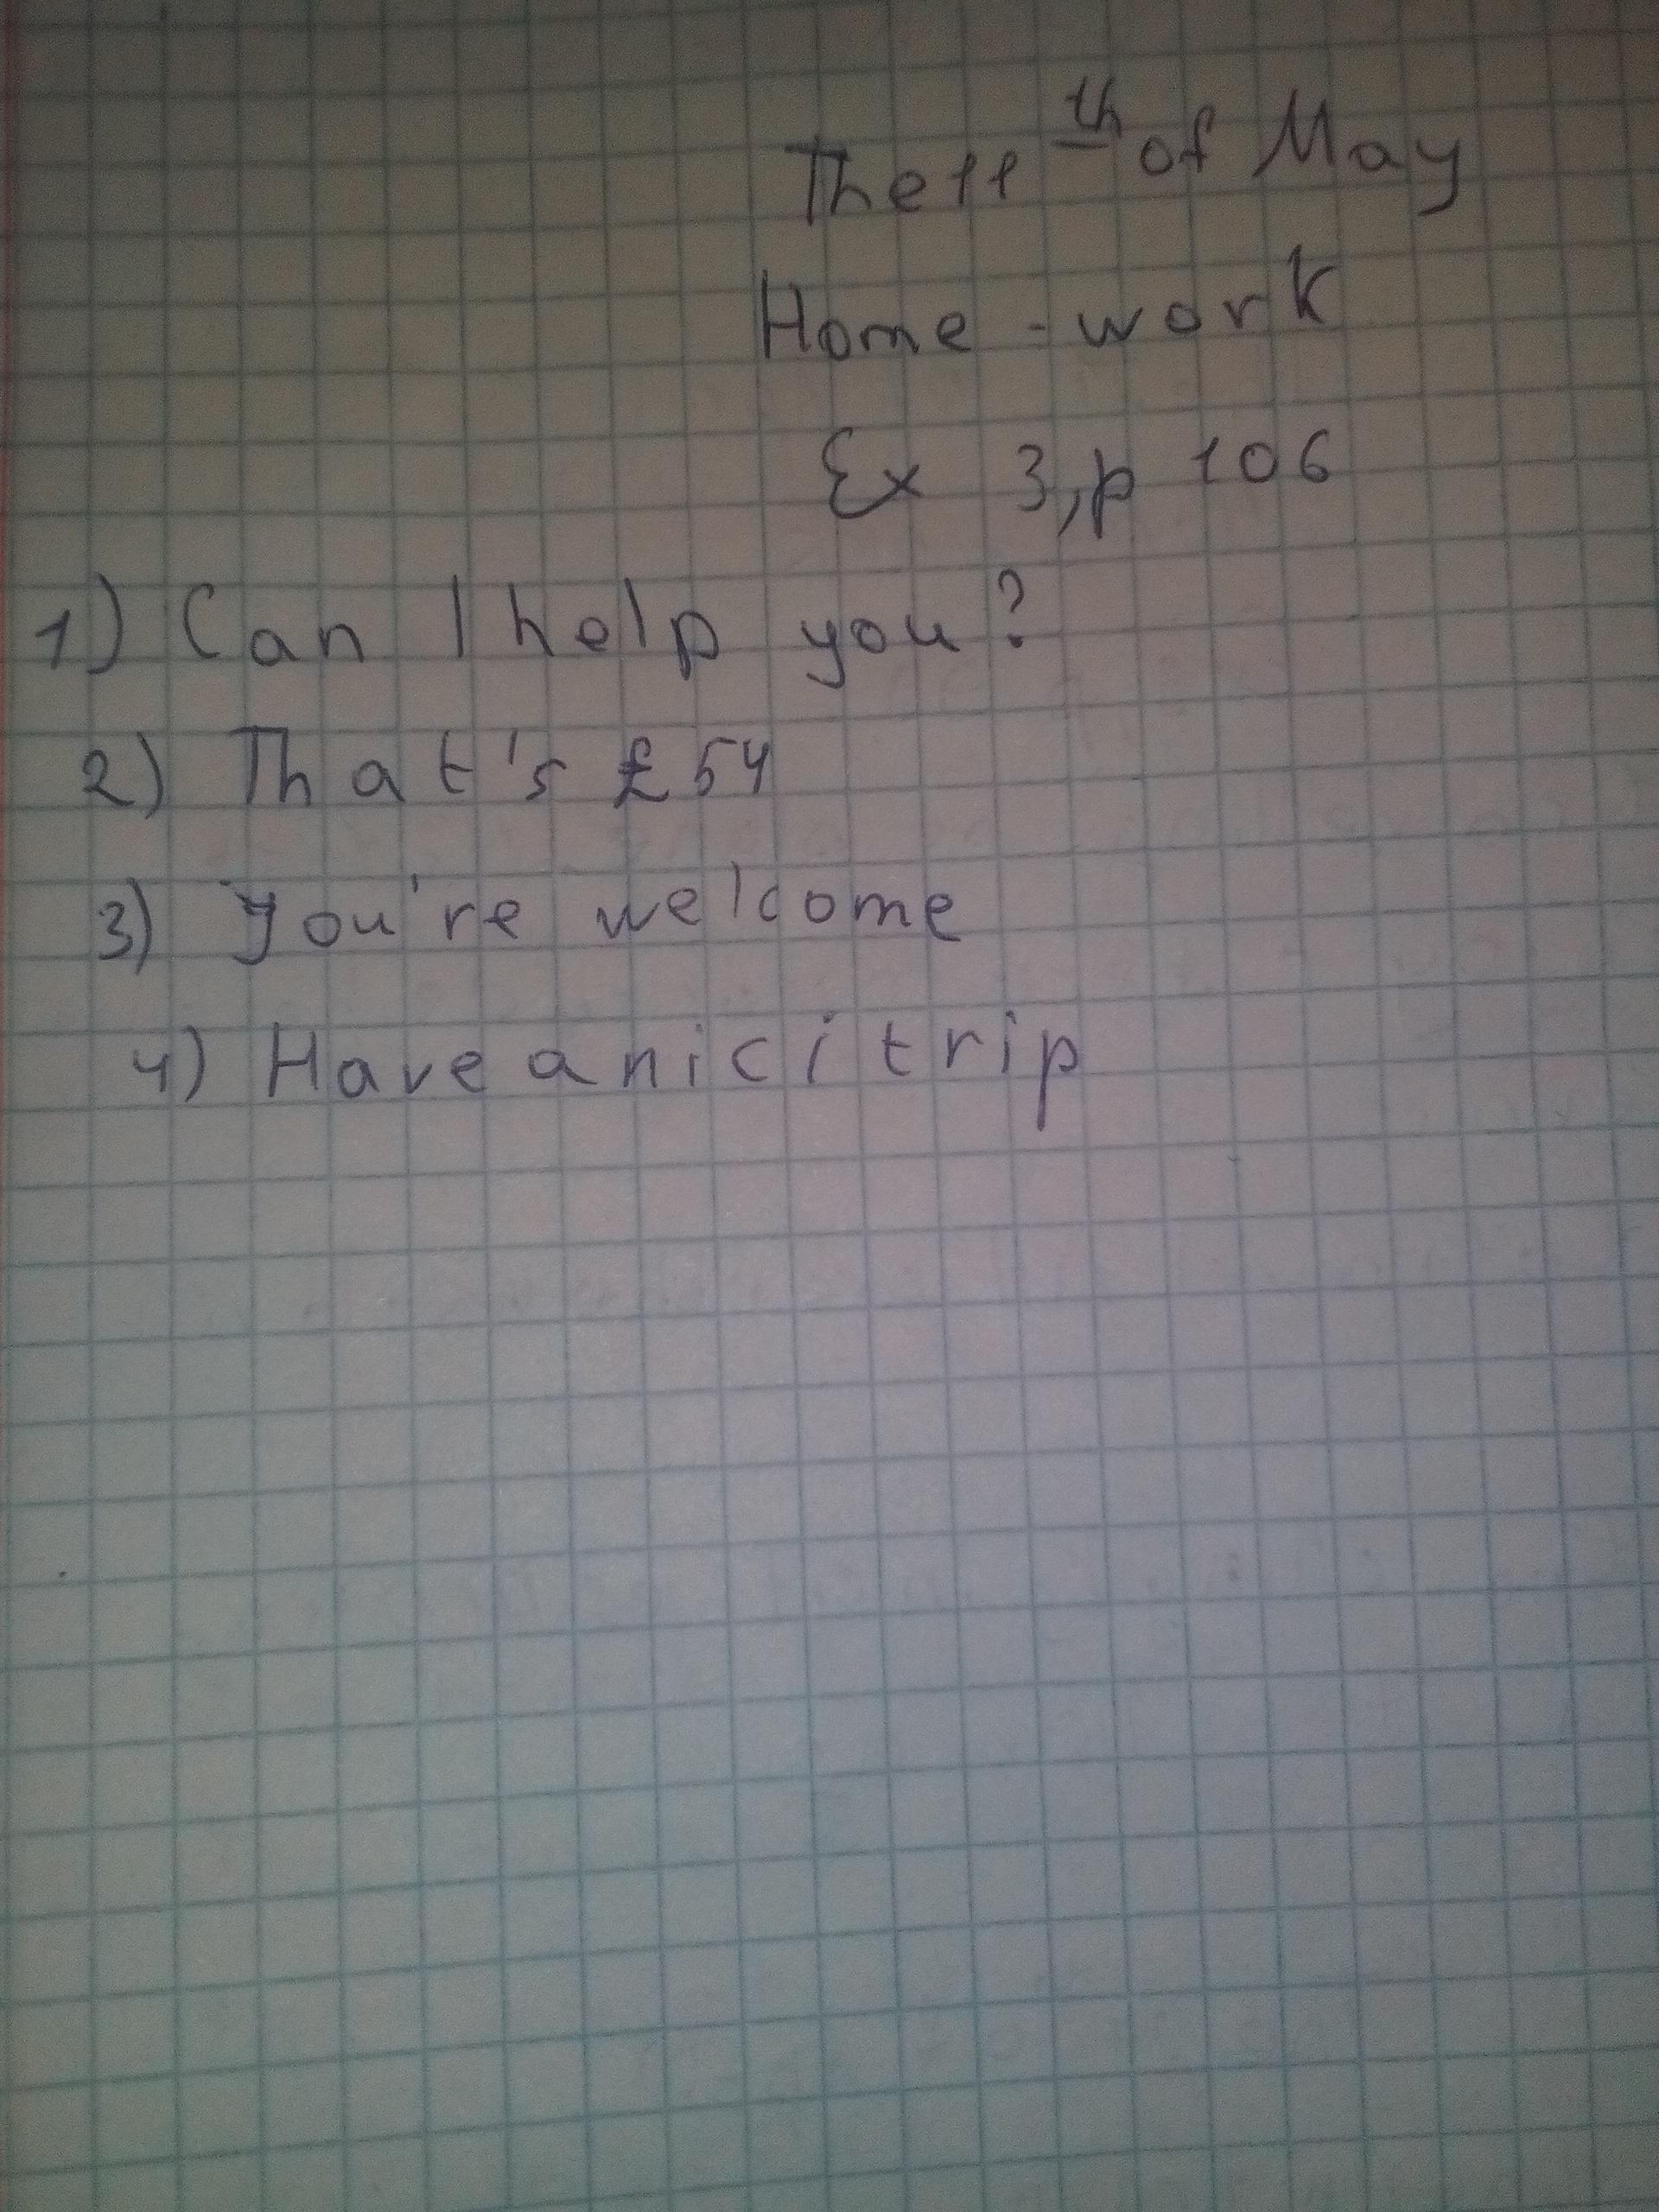 The 11th of May
Home-work
Ex 3, p 106
1) Can I help you?
2) That's £54
3) You're welcome
4) Have a nici trip